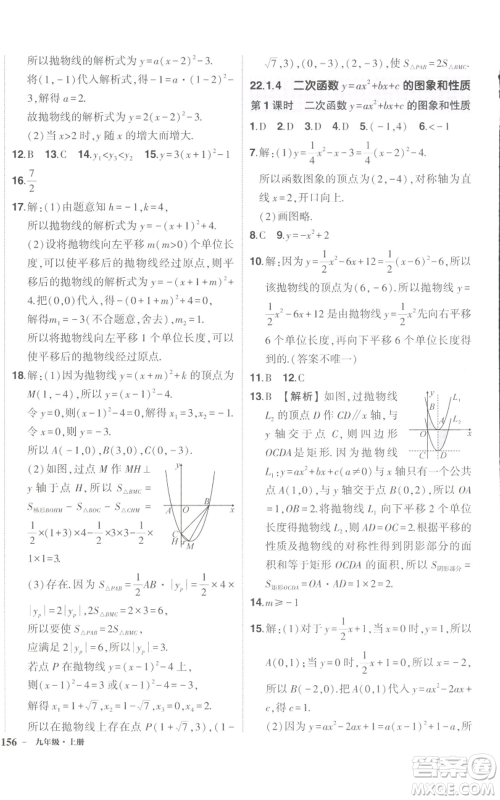 所以抛物线的解析式为 y=a(x-2)²-3.
将(1,0)代入解析式,得 a-3=0.
解得 a=3.
故抛物线的解析式为 y=3(x-2)²-3.
(2)当 x>2 时,y 随 x 的增大而增大.
12.B 13.C 14.y₁<y₃<y₂ 15.y=(x+1)²
16.7/2
17.解:(1)由题意知 h=-1,k=4.
(2)设将抛物线向左平移 m(m>0)个单位长
度,可以使平移后的抛物线经过原点,则平
移后的抛物线的解析式为 y=-(x+1+m)²
+4.把原点(0,0)代入,得 0=-(1+m)²+4.
解得 m₁=-3(不合题意,舍去),m₂=1.
所以将抛物线向左平移 1 个单位长度,可以
使平移后的抛物线经过原点.
18.解:(1)因为抛物线 y=(x-1)²-4 的顶点为
M(1,-4).
令 x=0,则 y=-3.所以 C(0,-3).
令 y=0,则(x-1)²-4=0.
解得 x=-1 或 3.
所以 A(-1,0),B(3,0).
(2)如图,过点 M 作 MH⊥
y 轴于点 H,所以 S△BMC=
S梯形BOHM-S△BOC-S△CHM=
1/2×(1+3)×4-1/2×3×3-1/2×
1×1=3.
(3)存在.因为 S△PAB=1/2AB·|yₚ|=1/2×4×
|yₚ|=2|yₚ|,2S△BMC=2×3=6,
所以要使 S△PAB=2S△BMC,
应满足 2|yₚ|=6.所以|yₚ|=3.
若点 P 在抛物线的图象上,则(x-1)²-4=3.
解得 x₁=1+√7,x₂=1-√7.
所以在抛物线上存在点 P(1+√7,3)或(1-
√7,3),使 S△PAB=2S△BMC.
22.1.4 二次函数 y=ax²+bx+c 的图象和性质
第 1 课时 二次函数 y=ax²+bx+c 的图象和性质
1.D 2.D 3.A 4.D 5.(-1,1) 6.<-1
7.解:(1)y=1/4x²-x-3=1/4(x-2)²-4.
所以函数图象的顶点为(2,-4),对称轴为直
线 x=2,开口向上.
(2)画图略.
8.C 9.y=-x²+2
10.解:因为 y=1/2x²-6x+12=1/2(x-6)²-6,所以
该抛物线的顶点为(6,-6).所以将抛物线 y=
1/2x²-6x+12 是由抛物线 y=1/2x²先向右平移
6 个单位长度,再向下平移 6 个单位长度得
到的.(答案不唯一)
11.B 12.C
13.B 【解析】如图,过抛物线
L₂ 的顶点 D 作 CD∥x 轴,与
y 轴交于点 C,则四边形
OCDA 是矩形.因为抛物线
L₁:y=ax²+bx+c(a≠0)与 x 轴只有一个公共
点 A(1,0),与 y 轴交于点 B(0,2),所以 OA=
1,OB=2.由抛物线 L₁ 向下平移两个单位长
度得抛物线 L₂,则 AD=OC=2.根据平移的性
质及抛物线的对称性得到阴影部分的面积
等于矩形 OCDA 的面积.所以 S阴影部分=
S矩形OCDA=OA·AD=1×2=2.
14.m≥-1
15.解:(1)对于 y=1/2x+1/2,当 x=0 时,y=1/2.所
以 A(0,1/2).当 x=1 时,y=1.所以 C(1,1).
(2)
156 - 九年级·上册